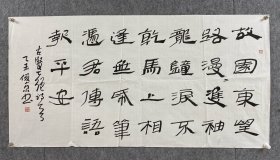 故園東望
路漫漫雙袖
龍鐘淚不
乾馬上相
逢無紙筆
憑君傳語
報平安